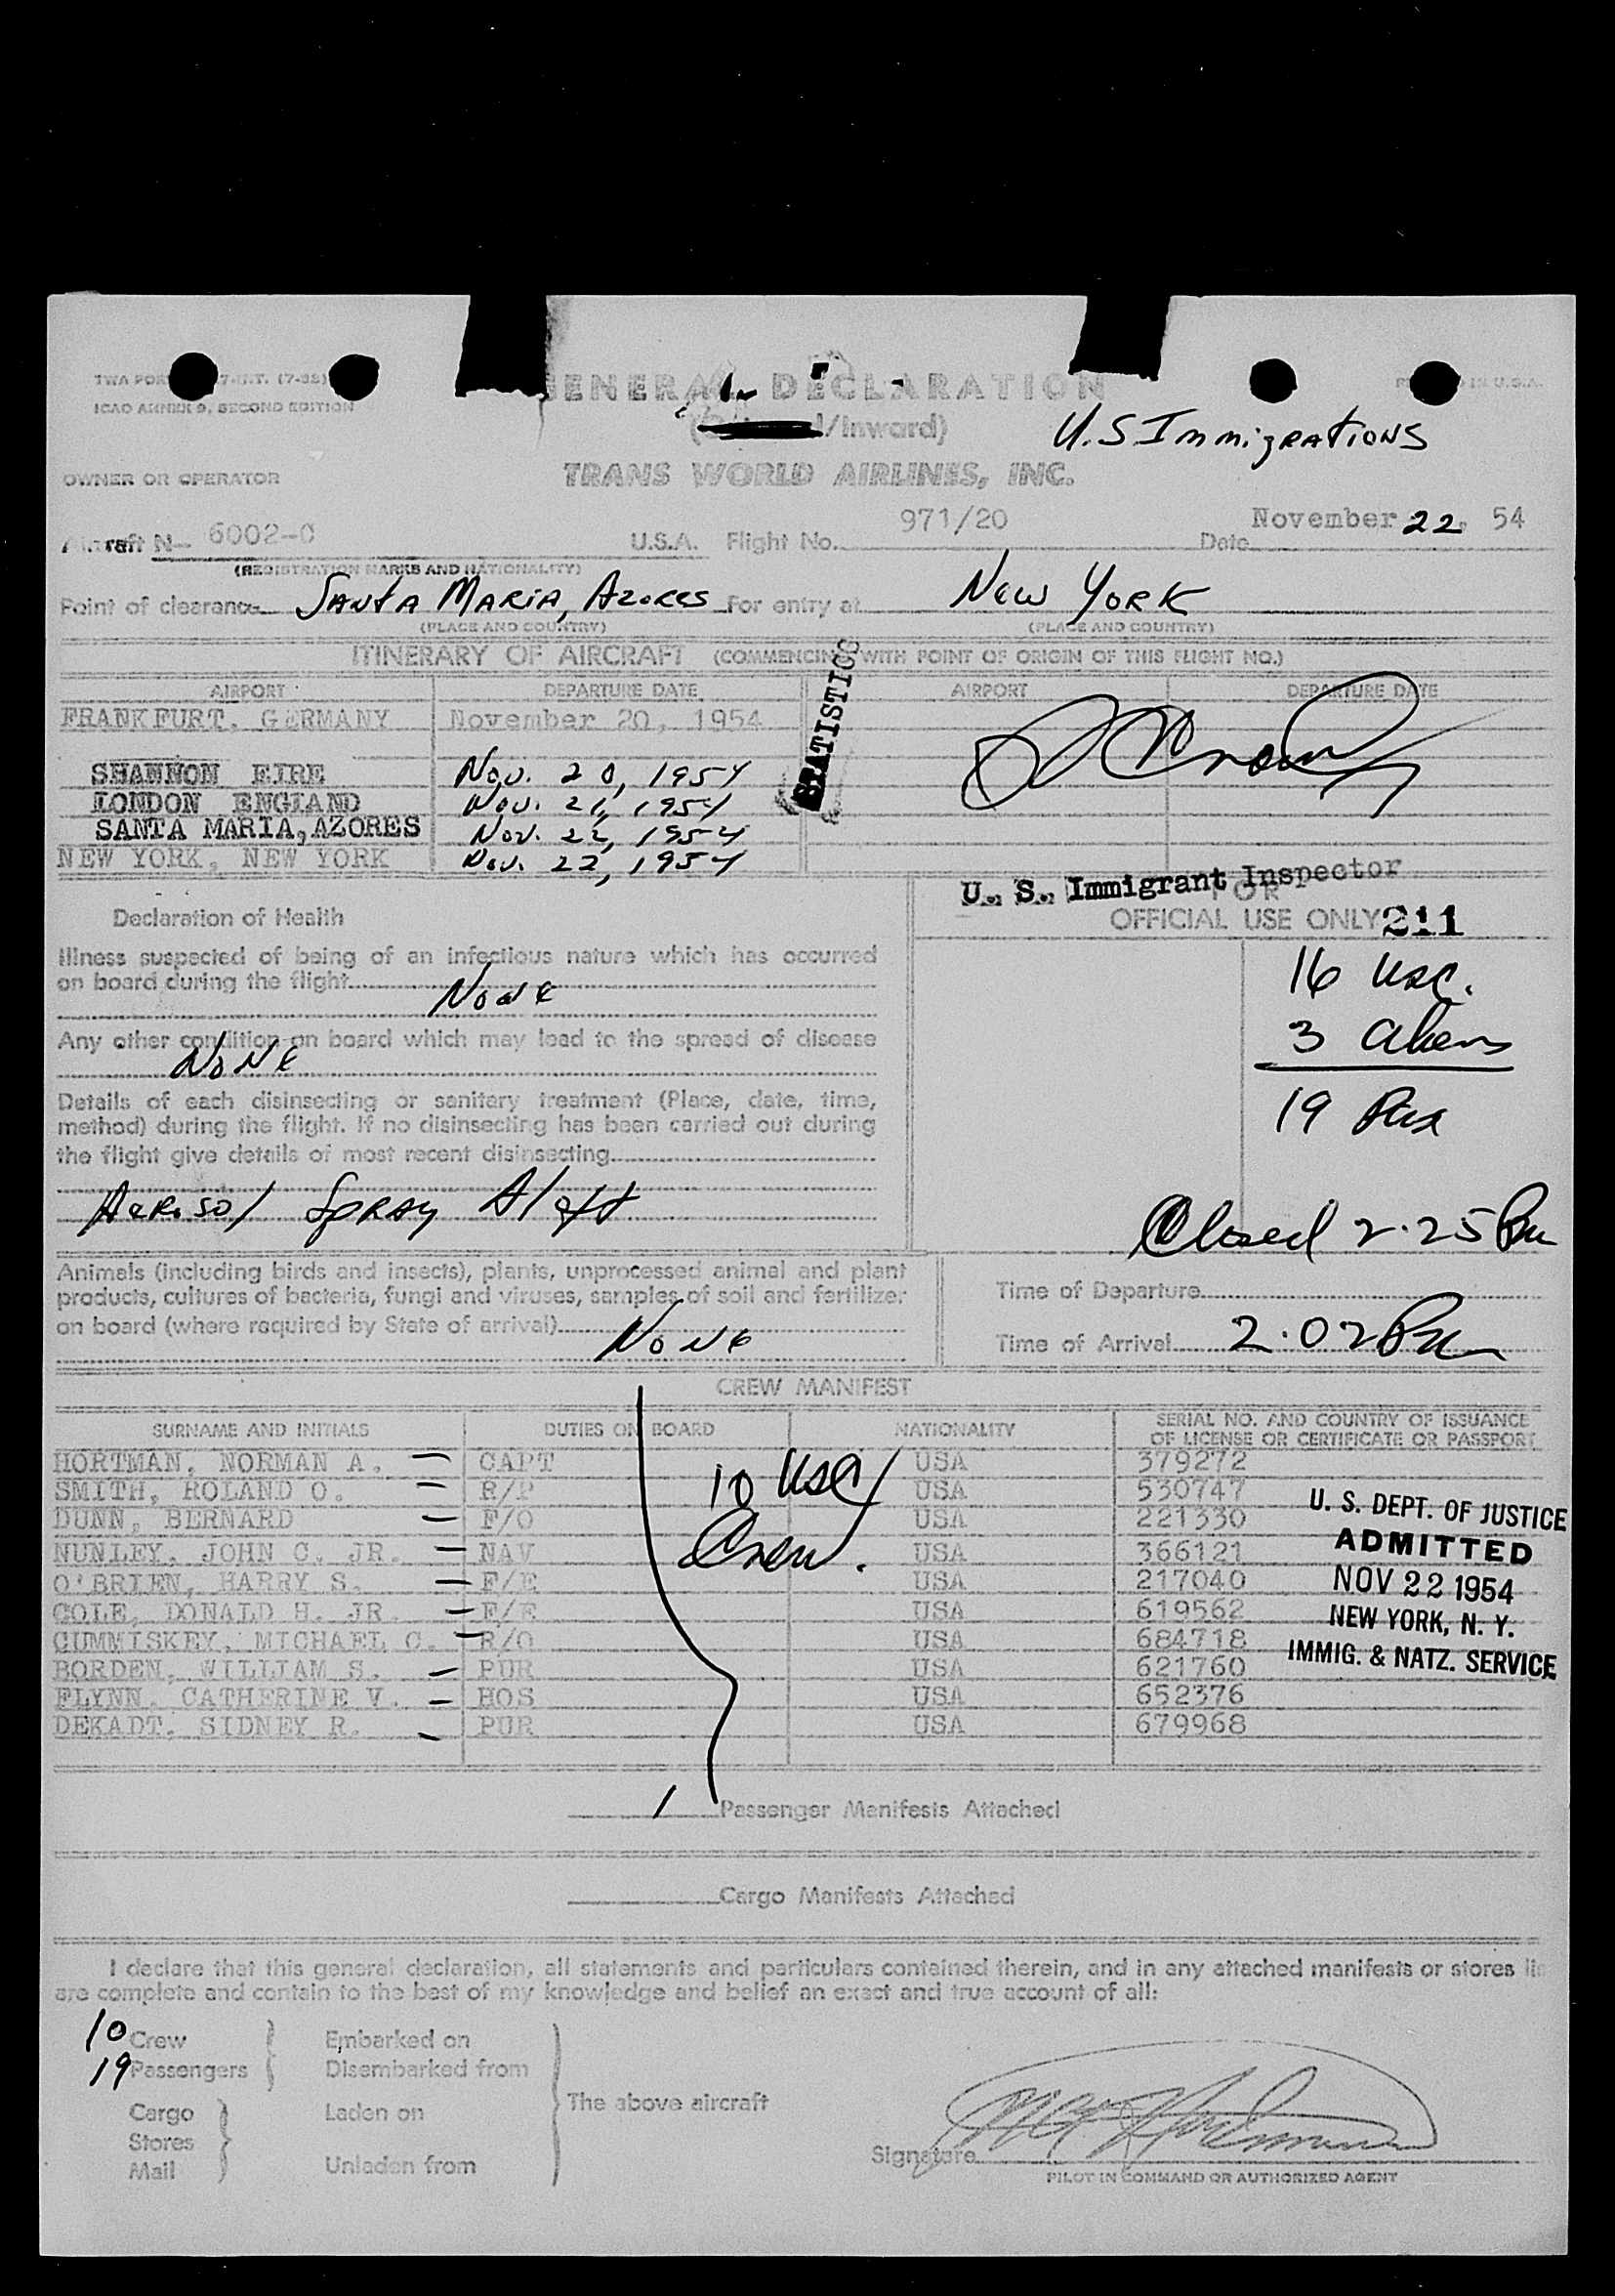 GENERAL DECLARATION
/Inward)
U.S Immigrations
ICAO ANNEX 9, SECOND EDITION
OWNER OR OPERATOR
TRANS WORLD AIRLINES, INC.
Aircraft N- 6002-C U.S.A. Flight No. 971/20 Date November 22, 54
(REGISTRATION MARKS AND NATIONALITY)
Point of clearance Santa Maria, Azores For entry at New York
(PLACE AND COUNTRY) (PLACE AND COUNTRY)
ITINERARY OF AIRCRAFT (COMMENCING WITH POINT OF ORIGIN OF THIS FLIGHT NO.)
STATISTICS
AIRPORT DEPARTURE DATE AIRPORT DEPARTURE DATE
FRANKFURT, GERMANY November 20, 1954
SHANNON EIRE Nov. 20, 1954
LONDON ENGLAND Nov. 21, 1954
SANTA MARIA, AZORES Nov. 22, 1954
NEW YORK, NEW YORK Nov. 22, 1954
U. S. Immigrant Inspector
FOR
OFFICIAL USE ONLY 211
16 USC.
3 aliens
19 Pax
Closed 2:25 Pm
Declaration of Health
Illness suspected of being of an infectious nature which has occurred
on board during the flight
None
Any other condition on board which may lead to the spread of disease
None
Details of each disinsecting or sanitary treatment (Place, date, time,
method) during the flight. If no disinsecting has been carried out during
the flight give details of most recent disinsecting
Aerisol Spray Aloft
Animals (including birds and insects), plants, unprocessed animal and plant
products, cultures of bacteria, fungi and viruses, samples of soil and fertilizer
on board (where required by State of arrival)
None
Time of Departure
Time of Arrival 2:02 Pm
CREW MANIFEST
SURNAME AND INITIALS DUTIES ON BOARD NATIONALITY SERIAL NO. AND COUNTRY OF ISSUANCE
OF LICENSE OR CERTIFICATE OR PASSPORT
HORTMAN, NORMAN A. CAPT USA 379272
SMITH, ROLAND O. R/P USA 530747
DUNN, BERNARD F/O USA 221330
NUNLEY, JOHN C. JR. NAV USA 366121
O'BRIEN, HARRY S. F/E USA 217040
COLE, DONALD H. JR. F/E USA 619562
CUMMISKEY, MICHAEL C. R/O USA 684718
BORDEN, WILLIAM S. PUR USA 621760
FLYNN, CATHERINE V. HOS USA 652376
DEKADT, SIDNEY R. PUR USA 679968
10 USC
Crew.
U. S. DEPT. OF JUSTICE
ADMITTED
NOV 22 1954
NEW YORK, N. Y.
IMMIG. & NATZ. SERVICE
1 Passenger Manifests Attached
Cargo Manifests Attached
I declare that this general declaration, all statements and particulars contained therein, and in any attached manifests or stores li
are complete and contain to the best of my knowledge and belief an exact and true account of all:
10 Crew Embarked on
19 Passengers Disembarked from
The above aircraft
Cargo Laden on
Stores
Mail Unladen from
Signature
PILOT IN COMMAND OR AUTHORIZED AGENT